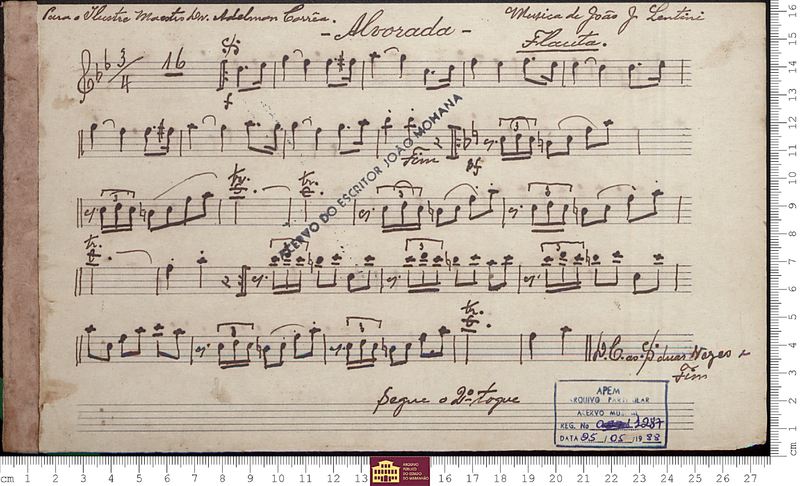 Para o Ilustre Maestro Dr. Adelman Corrêa.
Musica de João J. Lentini
- Alvorada -
Flauta.
3/4
16
f
ACERVO DO ESCRITOR JOÃO MOHANA
Fim
3
ff
3
tr.
tr.
3
3
tr.
3
3
3
3
3
tr.
D.C. ao duas Vezes e
Fim
Segue o 2º toque
APEM
ARQUIVO PARTICULAR
ACERVO MUSICAL
REG. No 1287
DATA 25/05/1988
cm 1 2 3 4 5 6 7 8 9 10 11 12 13
ARQUIVO
PÚBLICO
DO ESTADO
DO MARANHÃO
16 17 18 19 20 21 22 23 24 25 26 27
cm 1 2 3 4 5 6 7 8 9 10 11 12 13 14 15 16